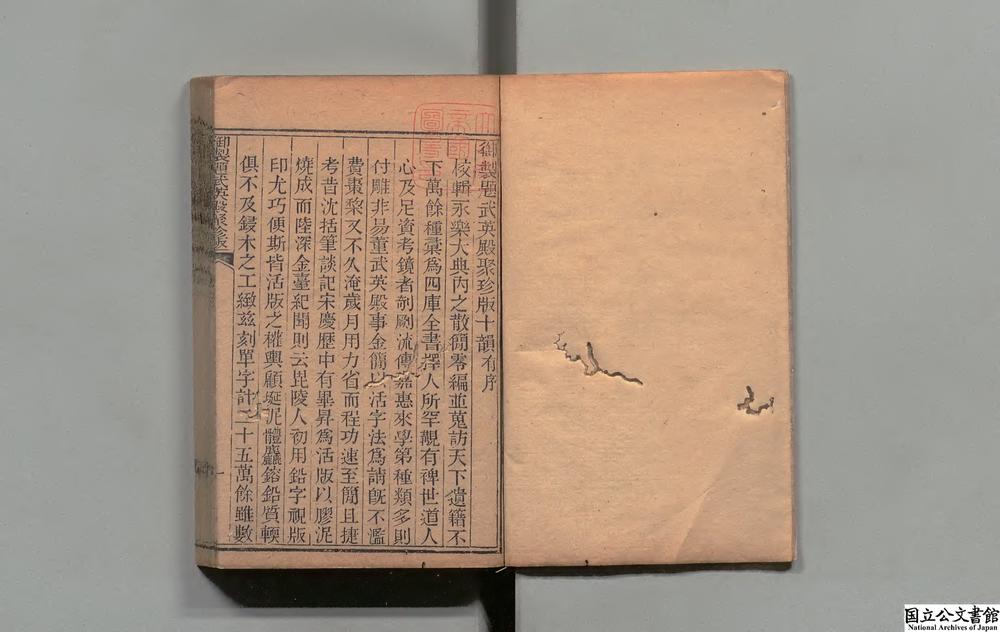 御製題武英殿聚珍版十韻有序
校輯永樂大典內之散簡零編並蒐訪天下遺籍不
下萬餘種彙為四庫全書擇人所罕覯有裨世道人
心及足資考鏡者剞劂流傳嘉惠來學第種類多則
付雕非易董武英殿事金簡以活字法為請既不濫
費棗棃又不久淹歲月用力省而程功速至簡且捷
考昔沈括筆談記宋慶歷中有畢昇為活版以膠泥
燒成而陸深金臺紀聞則云毘陵人初用鉛字視版
印尤巧便斯皆活版之權輿顧埏泥體麤鎔鉛質輭
俱不及鋟木之工緻茲刻單字計二十五萬餘雖數
御製題武英殿聚珍版
国立公文書館
National Archives of Japan